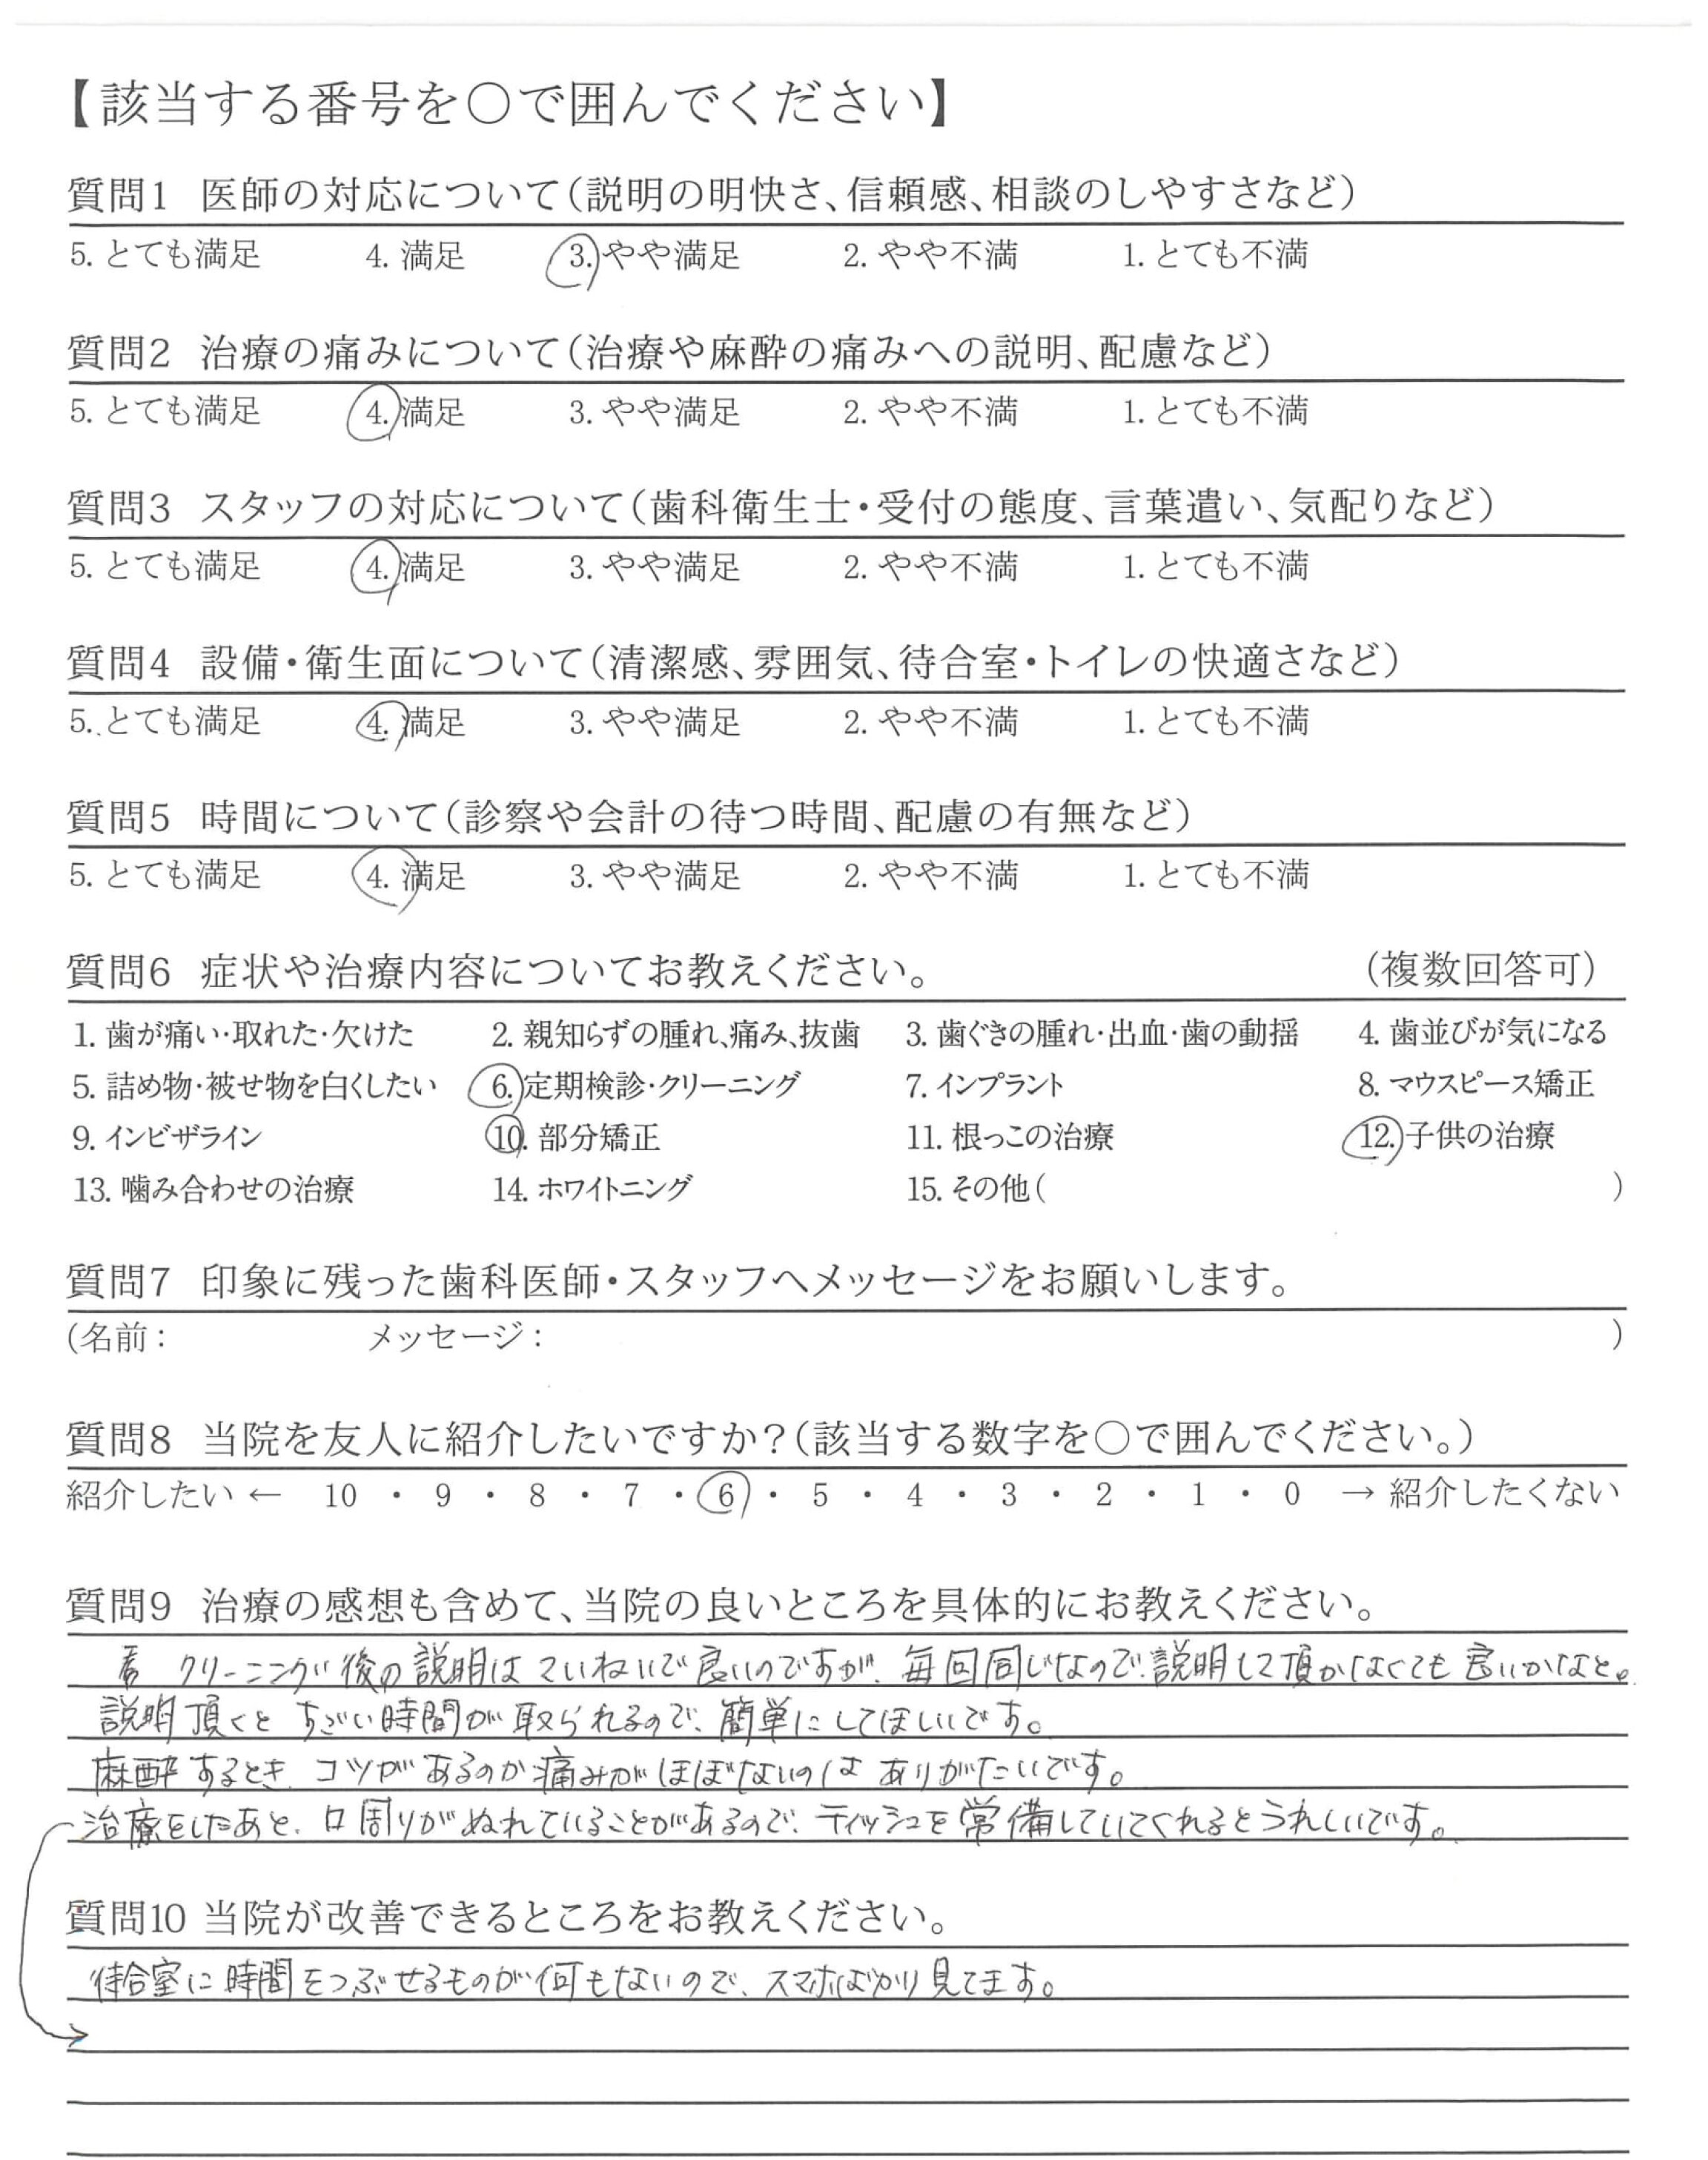 【該当する番号を〇で囲んでください】
質問1 医師の対応について(説明の明快さ、信頼感、相談のしやすさなど)
5. とても満足 4. 満足 3. やや満足 2. やや不満 1. とても不満
質問2 治療の痛みについて(治療や麻酔の痛みへの説明、配慮など)
5. とても満足 4. 満足 3. やや満足 2. やや不満 1. とても不満
質問3 スタッフの対応について(歯科衛生士・受付の態度、言葉遣い、気配りなど)
5. とても満足 4. 満足 3. やや満足 2. やや不満 1. とても不満
質問4 設備・衛生面について(清潔感、雰囲気、待合室・トイレの快適さなど)
5. とても満足 4. 満足 3. やや満足 2. やや不満 1. とても不満
質問5 時間について(診察や会計の待つ時間、配慮の有無など)
5. とても満足 4. 満足 3. やや満足 2. やや不満 1. とても不満
質問6 症状や治療内容についてお教えください。 (複数回答可)
1. 歯が痛い・取れた・欠けた 2. 親知らずの腫れ、痛み、抜歯 3. 歯ぐきの腫れ・出血・歯の動揺 4. 歯並びが気になる
5. 詰め物・被せ物を白くしたい 6. 定期検診・クリーニング 7. インプラント 8. マウスピース矯正
9. インビザライン 10. 部分矯正 11. 根っこの治療 12. 子供の治療
13. 噛み合わせの治療 14. ホワイトニング 15. その他( )
質問7 印象に残った歯科医師・スタッフへメッセージをお願いします。
(名前: メッセージ: )
質問8 当院を友人に紹介したいですか?(該当する数字を〇で囲んでください。)
紹介したい ← 10 ・ 9 ・ 8 ・ 7 ・ 6 ・ 5 ・ 4 ・ 3 ・ 2 ・ 1 ・ 0 → 紹介したくない
質問9 治療の感想も含めて、当院の良いところを具体的にお教えください。
クリーニング後の説明はていねいで良いのですが、毎回同じなので、説明して頂かなくても良いかなと。
説明頂くとすごい時間が取られるので、簡単にしてほしいです。
麻酔するとき、コツがあるのか痛みがほぼないのはありがたいです。
治療をしたあと、口周りがぬれていることがあるので、ティッシュを常備していてくれるとうれしいです。
質問10 当院が改善できるところをお教えください。
待合室に時間をつぶせるものが何もないので、スマホばかり見てます。